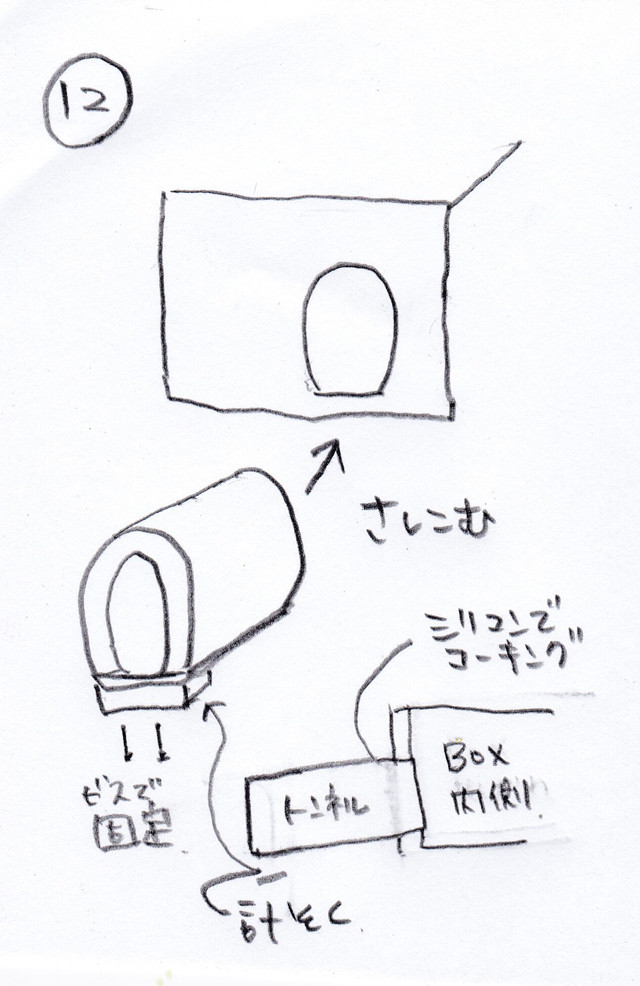 12
さしこむ
シリコンで
コーキング
Box
内側
トンネル
ビスで
固定
計そく